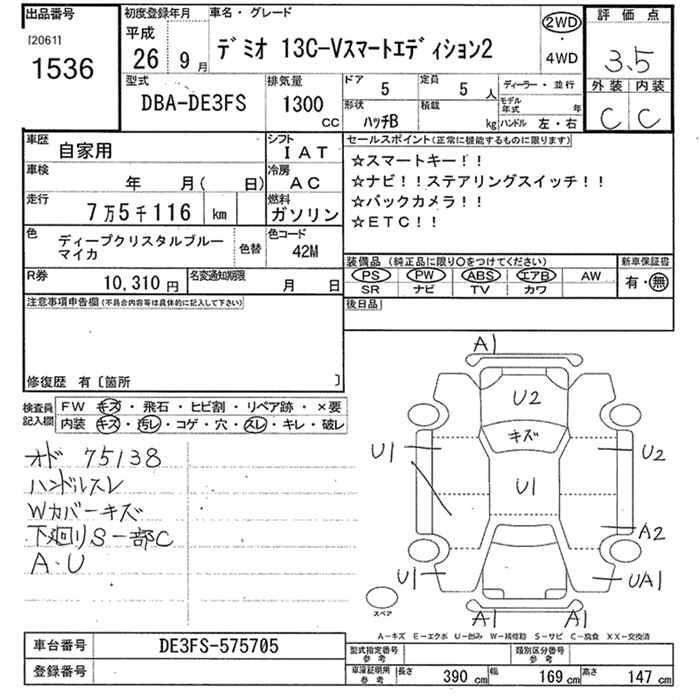 出品番号
[2061]
1536
初度登録年月
平成
26 9月
車名・グレード
デミオ 13C-Vスマートエディション2
2WD
・
4WD
評価点
3.5
外装 内装
C C
型式
DBA-DE3FS
排気量
1300
CC
ドア
5
定員
5人
形状
ハッチB
積載
kg
ディーラー・並行
モデル年式 年
ハンドル 左・右
車歴
自家用
シフト
IAT
車検
年 月( 日)
冷房
AC
走行
7万5千116 km
燃料
ガソリン
色
ディープクリスタルブルーマイカ
色替
色コード
42M
R券
10,310円
名変通知期限
月 日
セールスポイント(正常に機能するものに限ります)
☆スマートキー!!
☆ナビ!!ステアリングスイッチ!!
☆バックカメラ!!
☆ETC!!
装備品(純正品に限り○をつけてください)
PS PW ABS エアB AW
SR ナビ TV カワ
新車保証書
有・無
後日品
注意事項申告欄(不具合内容等は具体的に記入して下さい)
修復歴 有〔箇所 〕
検査員記入欄
FW キズ・飛石・ヒビ割・リペア跡・×要
内装 キズ・汚レ・コゲ・穴・スレ・キレ・破レ
オド 75138
ハンドルスレ
Wカバーキズ
下廻りS一部C
A・U
A1
U2
キズ
U1
U2
U1
A2
U1
UA1
A1 A1
スペア
A-キズ E-エクボ U-凹み W-補修跡 S-サビ C-腐食 XX-交換済
車台番号
DE3FS-575705
登録番号
型式指定番号
参考
類別区分番号
参考
車庫証明用
参考
長さ 390cm 幅 169cm 高さ 147cm